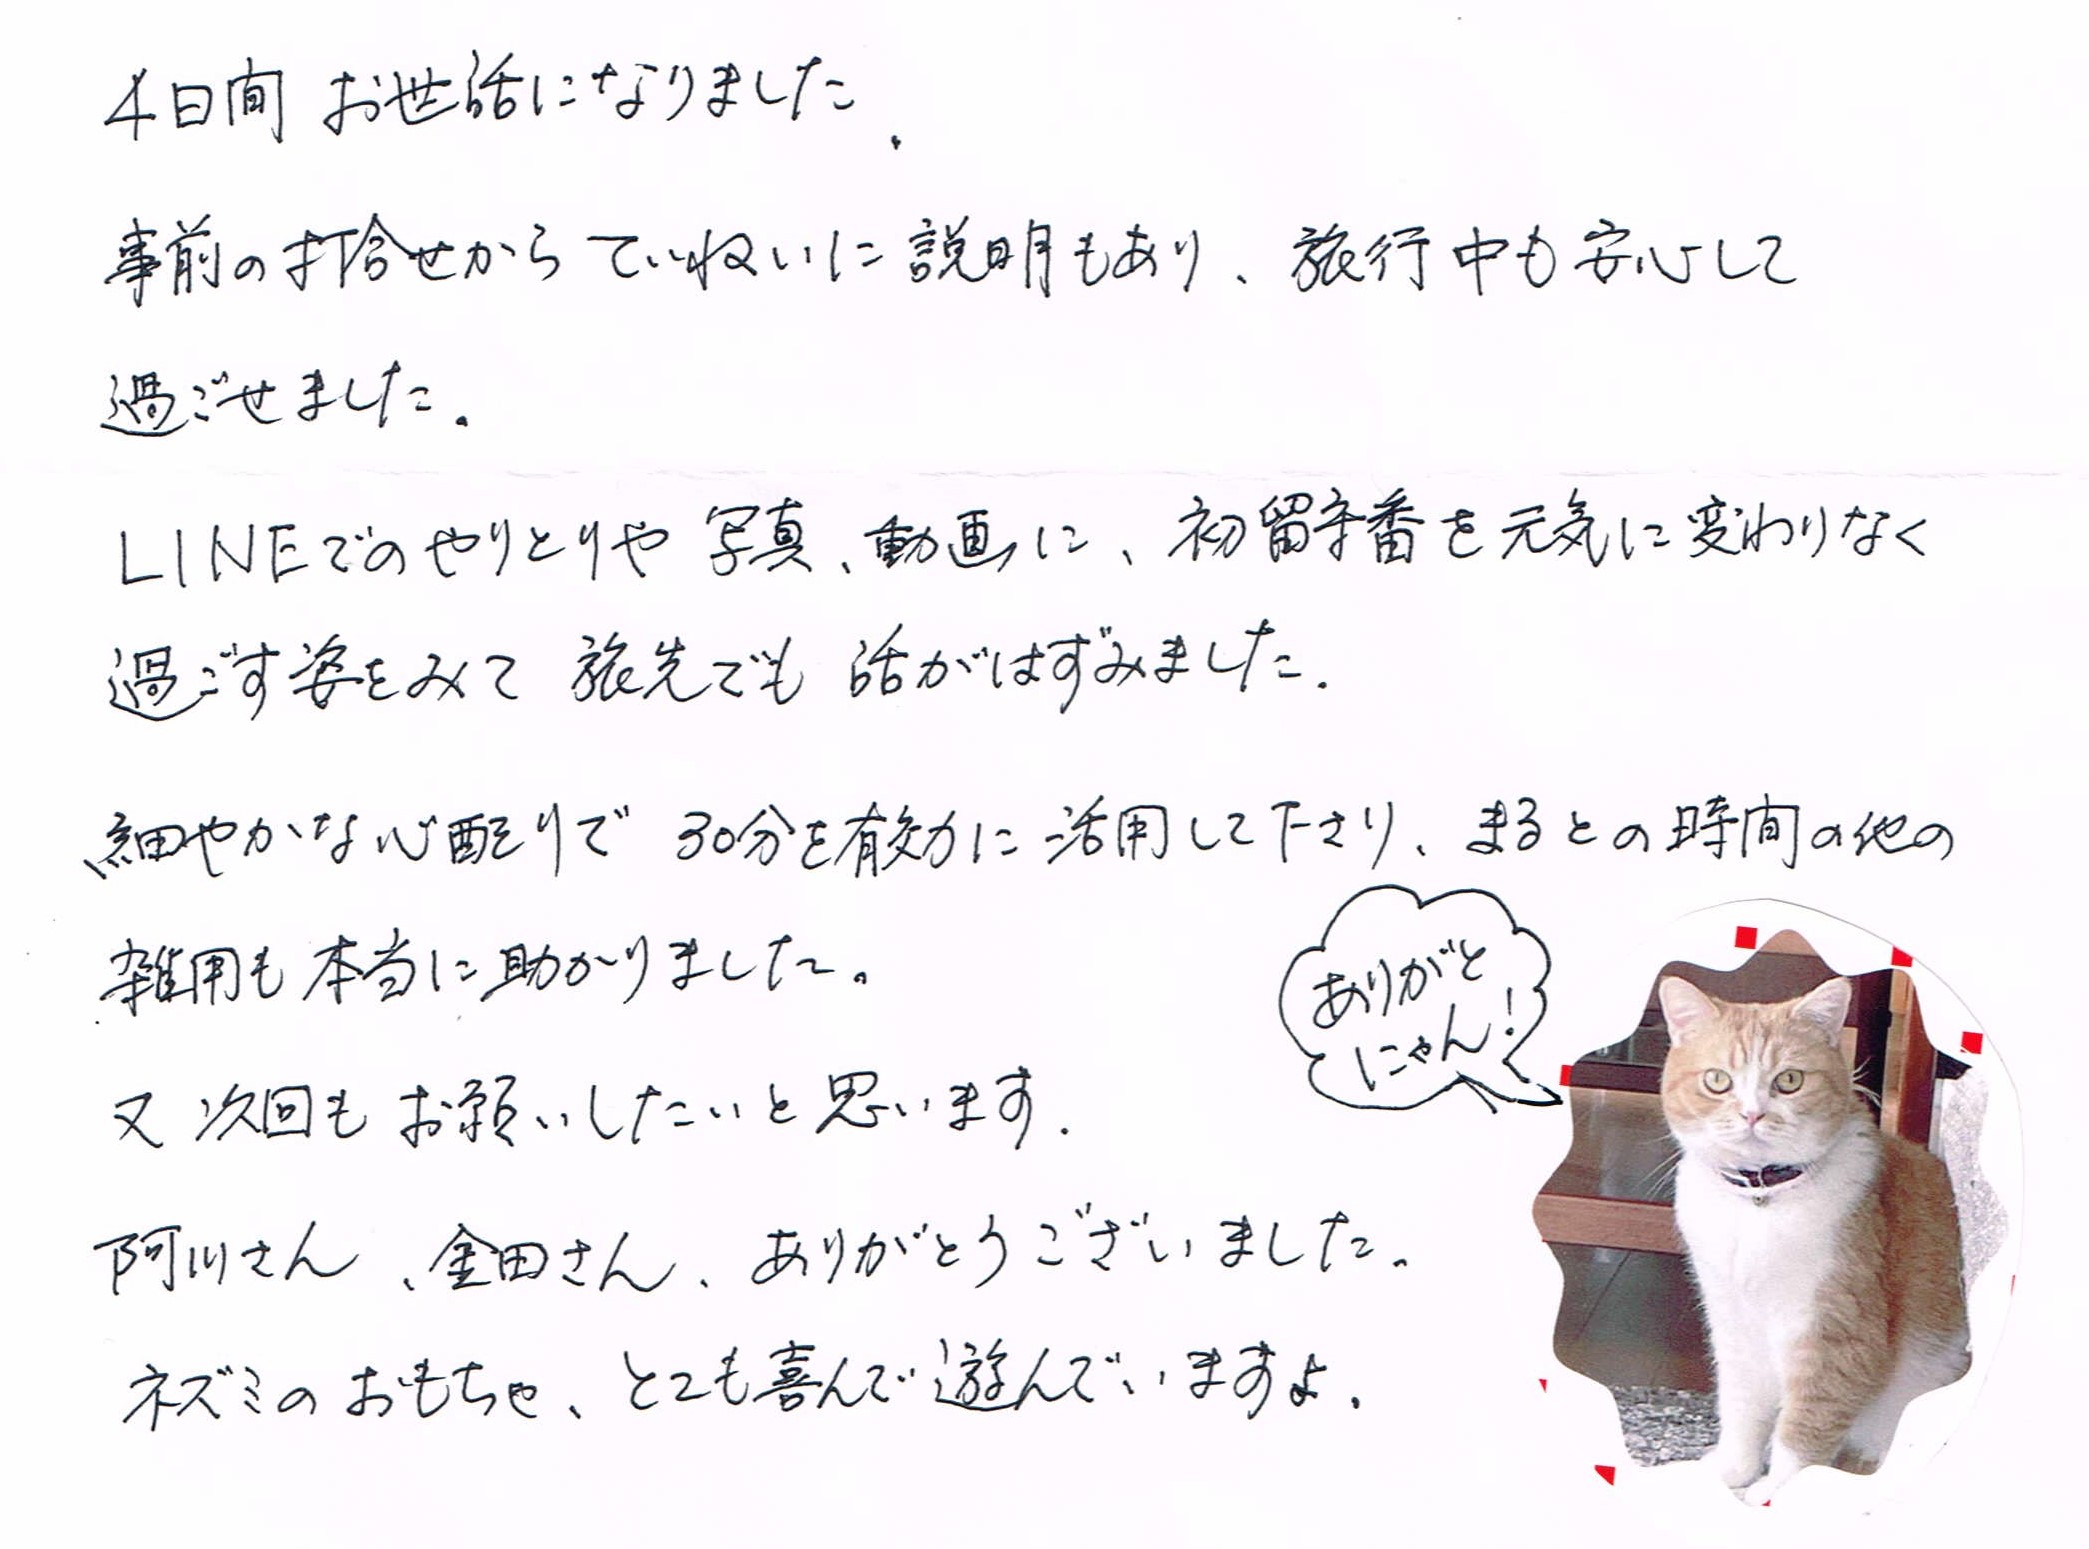 4日間 お世話になりました.
事前の打合せからていねいに説明もあり、旅行中も安心して
過ごせました.
LINEでのやりとりや写真、動画に、初留守番を元気に変わりなく
過ごす姿をみて 旅先でも 話がはずみました.
細やかな心配りで 30分を有効に活用して下さり、まるとの時間の他の
雑用も本当に助かりました。
又 次回も お願いしたいと思います.
阿川さん、金田さん、ありがとうございました.
ネズミのおもちゃ、とても喜んで遊んでいますよ.
ありがと
にゃん!